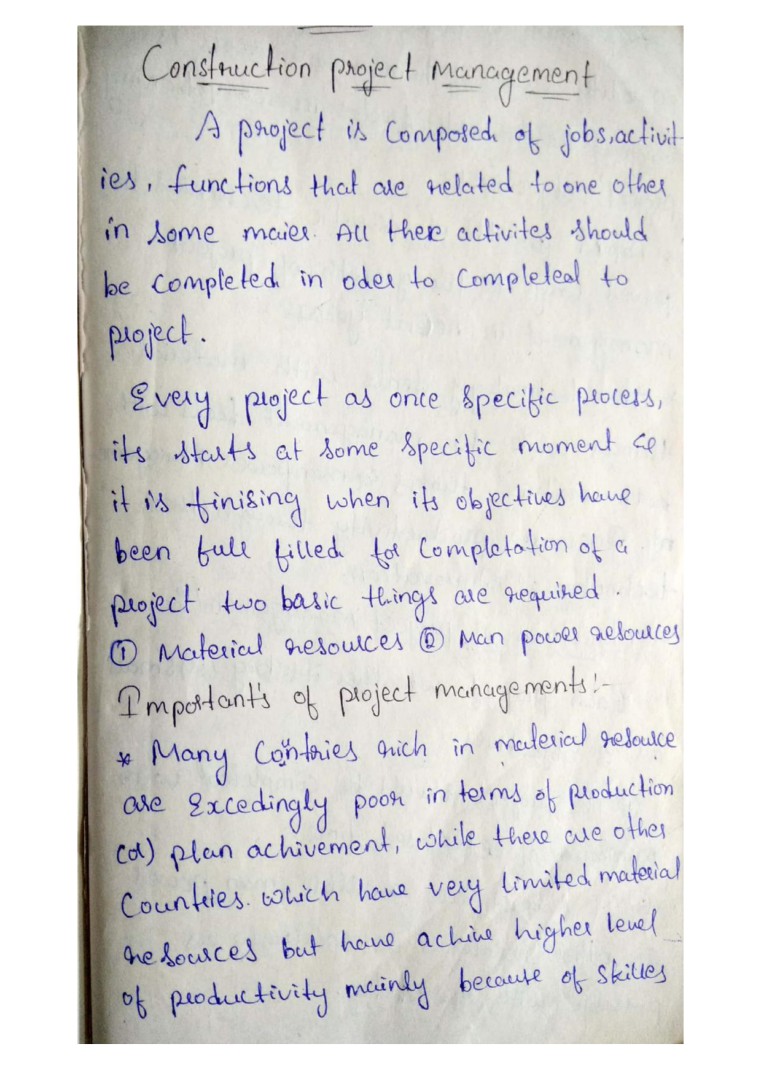 Construction project Management
A project is Composed of jobs, activit-
ies, functions that are related to one other
in some maier. All there activites should
be Completed in oder to Completeal to
project.
Every project as once specific process,
its starts at some specific moment &
it is finising when its objectives have
been full filled for Completation of a
project two basic things are required.
① Material resources ② Man power resources
Important's of project managements:-
* Many Contries rich in material resource
are Excedingly poor in terms of production
(or) plan achivement, while there are other
Countries. which have very limited material
resources but have achive higher level
of productivity mainly because of skilles